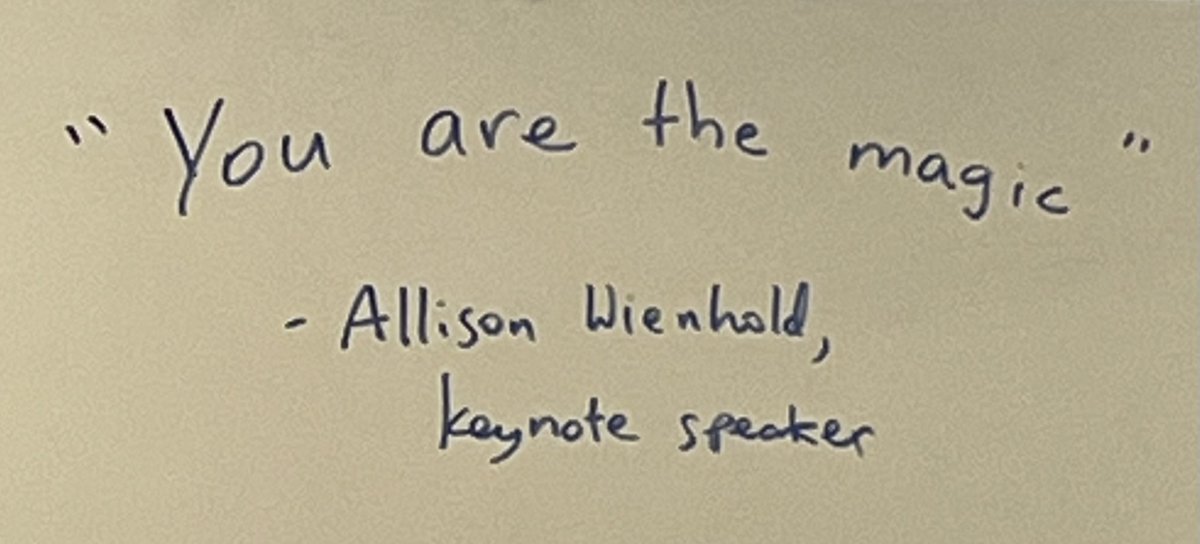 "You are the magic"
- Allison Wienhold,
keynote speaker